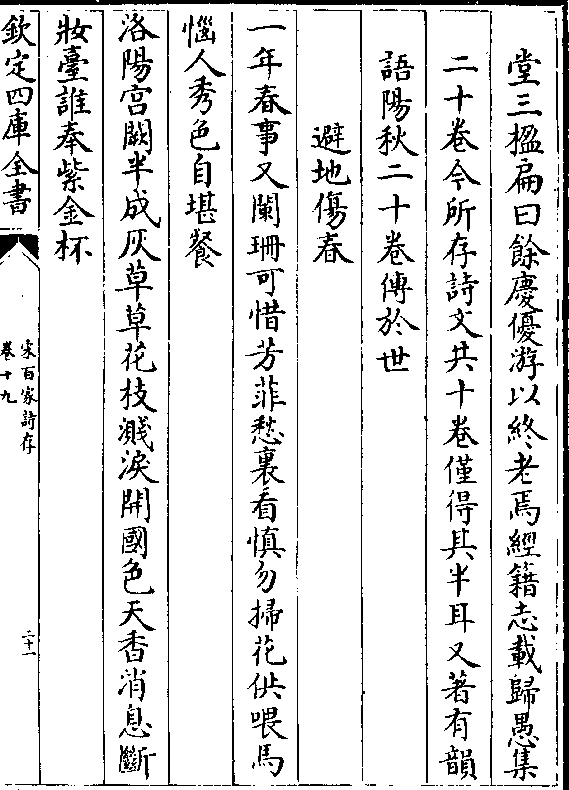 堂三楹扁曰餘慶優游以終老焉經籍志載歸愚集
二十卷今所存詩文共十卷僅得其半耳又著有韻
語陽秋二十卷傳於世
避地傷春
一年春事又闌珊可惜芳菲愁裏看慎勿掃花供喂馬
惱人秀色自堪餐
洛陽宮闕半成灰草草花枝濺淚開國色天香消息斷
妝臺誰奉紫金杯
欽定四庫全書
宋百家詩存
卷十九
二十一